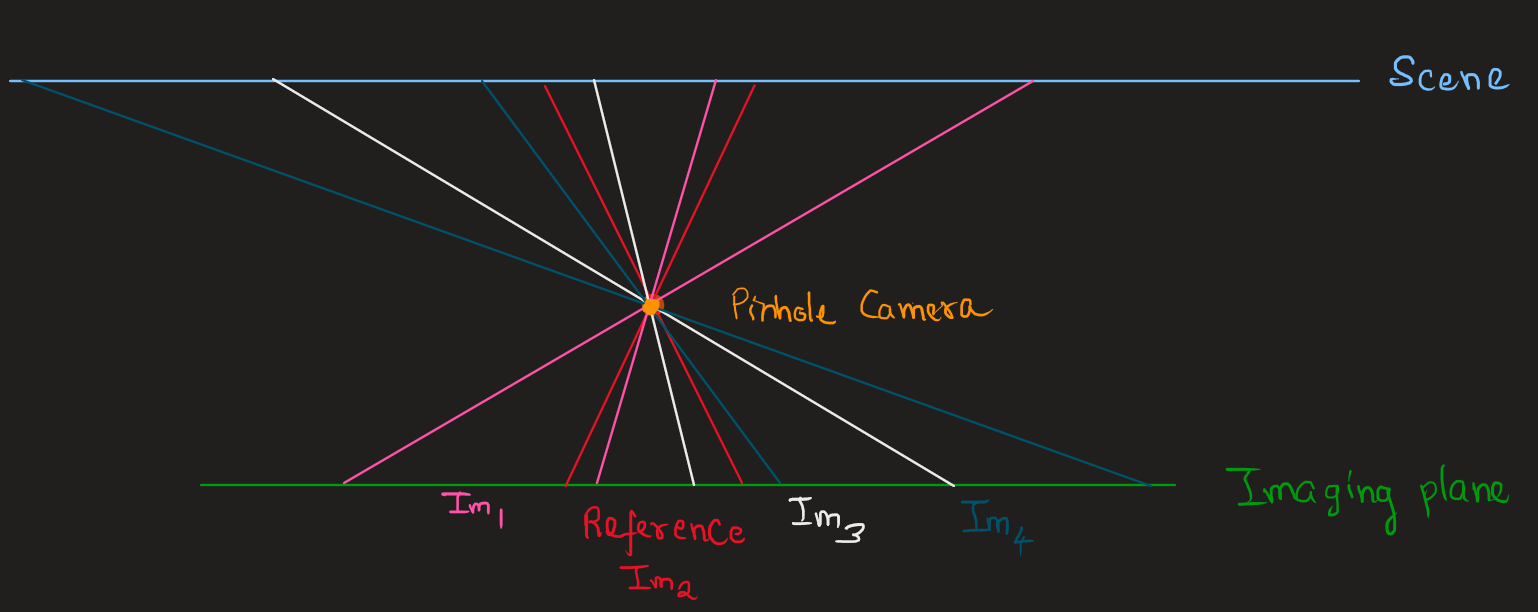 Scene
Pinhole Camera
Imaging plane
Im1
Reference
Im2
Im3
Im4